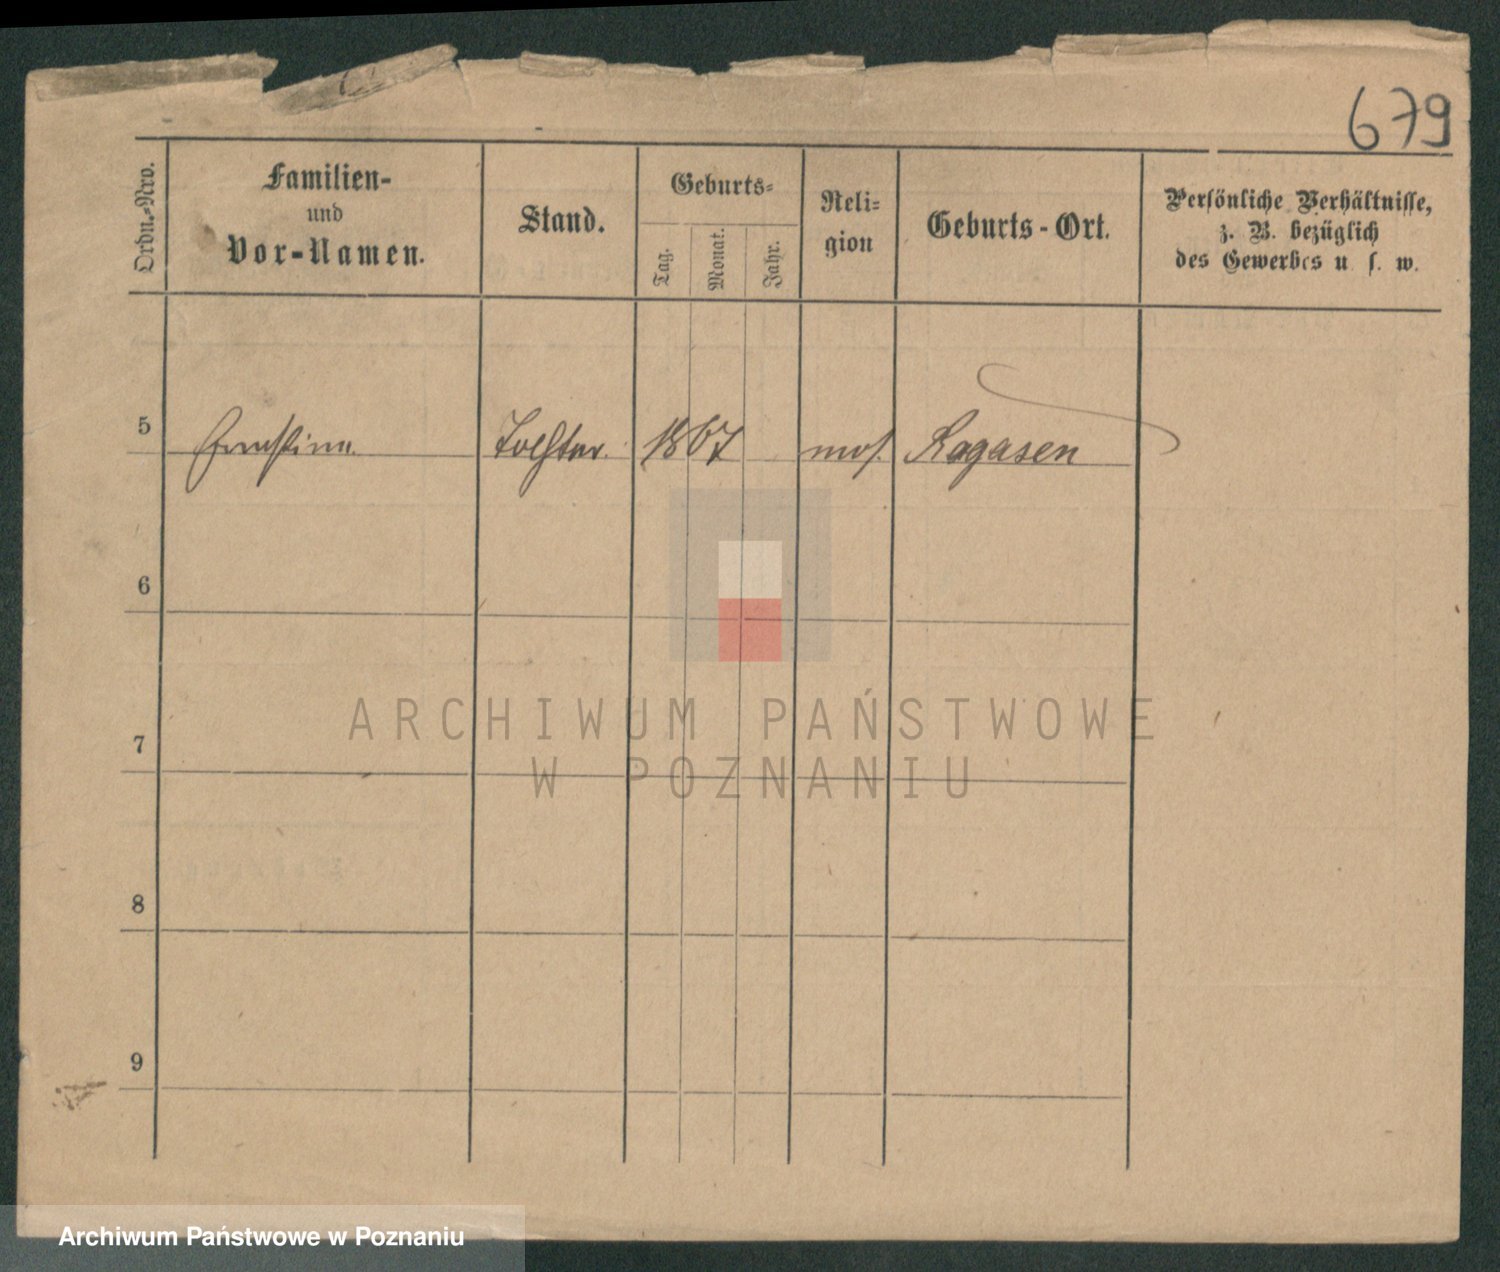 679
Ordn.-Nro.
Familien-
und
Vor-Namen.
Stand.
Geburts-
Tag.
Monat.
Jahr.
Reli-
gion
Geburts-Ort.
Persönliche Verhältnisse,
z. B. bezüglich
des Gewerbes u. s. w.
5 Ernstine Tochter 1867 mos. Rogasen
6
7
8
9
ARCHIWUM PAŃSTWOWE
W POZNANIU
Archiwum Państwowe w Poznaniu